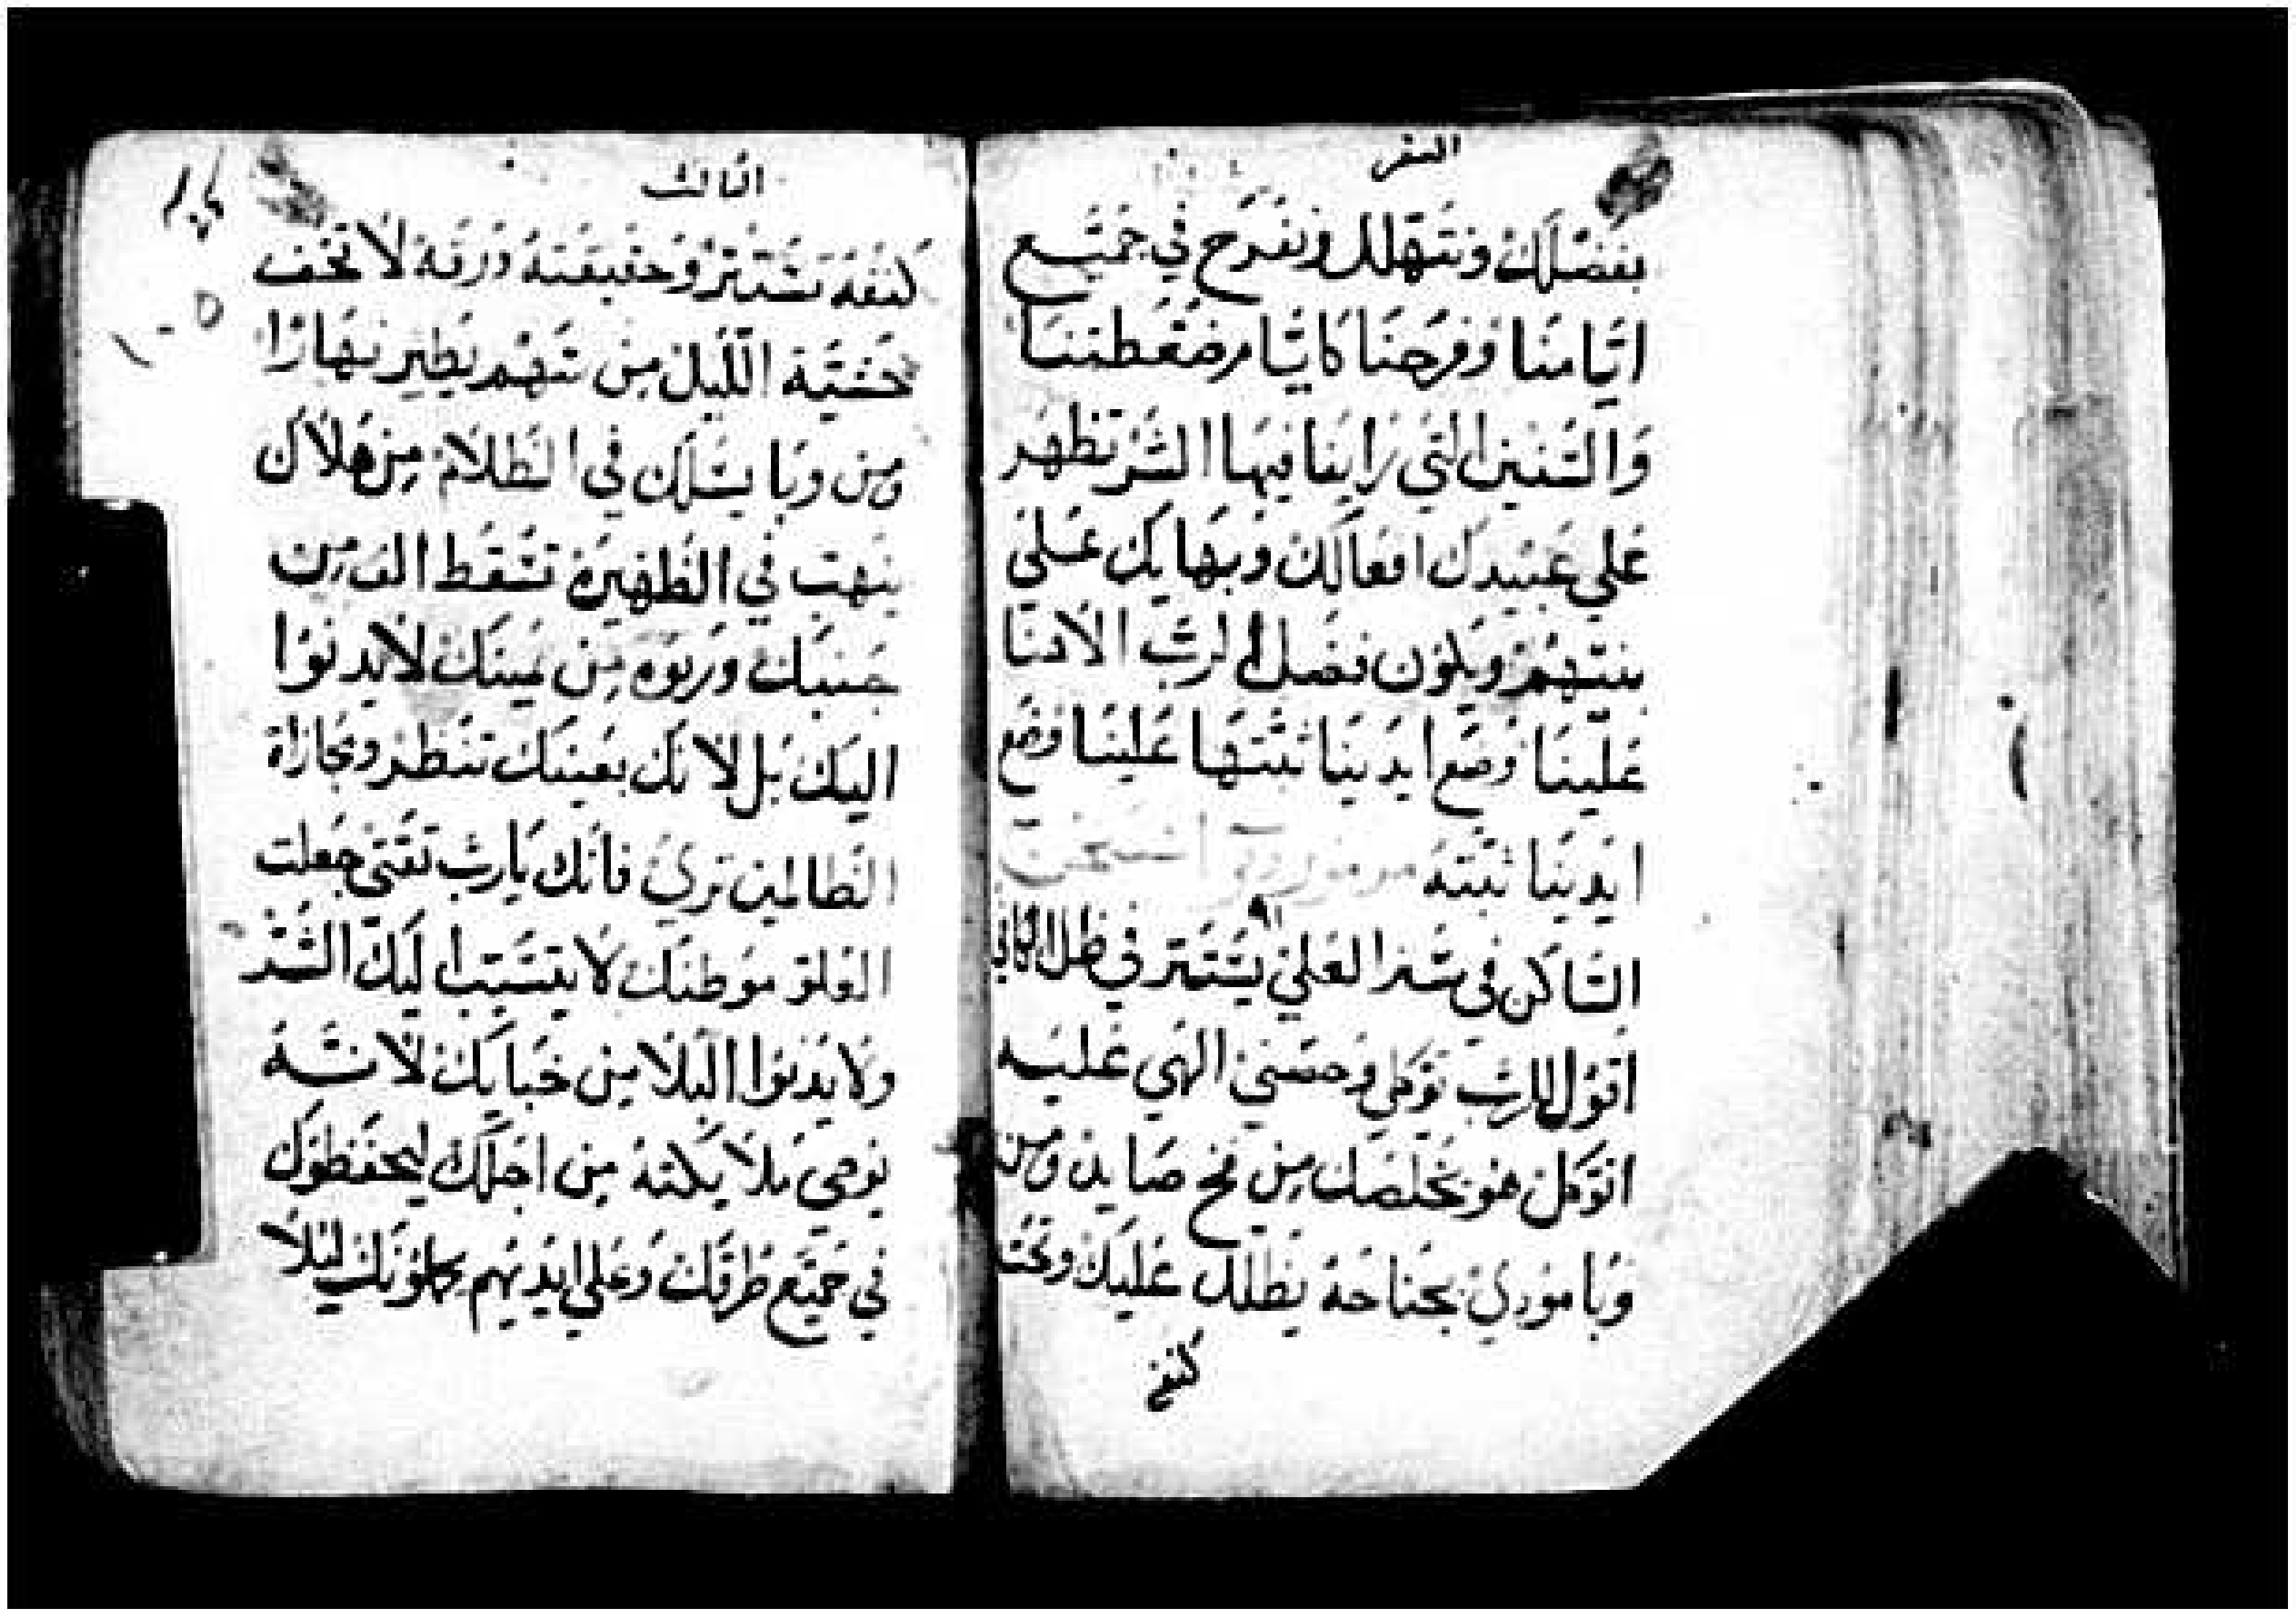 السفر
بفضلك ونتهلل ونفرح في جميع
ايامنا وفرحنا كايام ضغطتنا
والسنين التي راينا فيها الشر تظهر
علي عبيدك افعالك وبهايك علي
بنيهم ويكون فضل الرب الاهنا
علينا وضع ايدينا ثبتها علينا وضع
ايدينا ثبته
٩١
الساكن في ستر العلي يستتر في ظل الكافي
اقول للرب توكلي وحصني الهي عليه
اتوكل هو يخلصك من فخ صايد ومن
وبا موذي بجناحه يظلل عليك وتحت
كنفه
الثالث
كنفه تستتر وحقيقته درقه لا تخف
خشية الليل من سهم يطير نهارا
ومن وبا يسلك في الظلام من هلاك
ينهب في الظهيرة تسقط الف من
جنبك وربوه من يمينك لا يدنوا
اليك بل لانك بعينك تنظر ومجازاة
الظالمين تري فانك يارب ثقتي جعلت
العلو موطنك لا يتسبب اليك الشر
ولا يدنوا البلا من خبايك لانه
يوصي ملايكته من اجلك ليحفظوك
في جميع طرقك وعلي ايديهم يحملونك ليلا